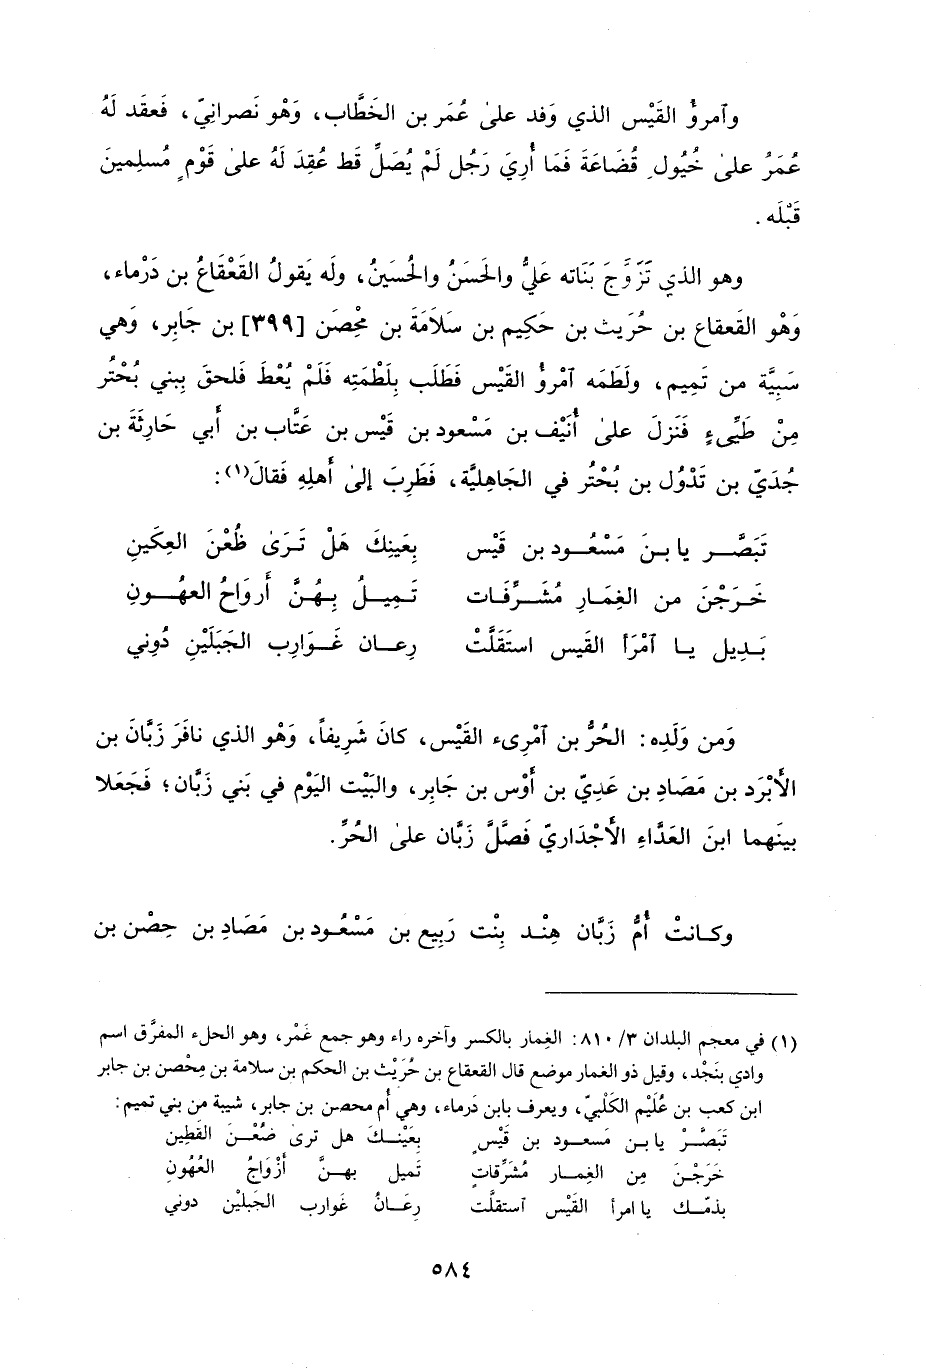 وآمرؤُ القَيْس الذي وَفد علىٰ عُمَر بن الخَطَّاب، وَهْو نَصرانِيّ، فَعقَد لَهُ
عُمَرُ علىٰ خُيُولِ قُضَاعَةَ فَمَا أُرِيَ رَجُل لَمْ يُصَلِّ قَط عُقِدَ لَهُ علىٰ قَوْمٍ مُسلِمينَ
قَبْلَه .
وهو الذي تَزَوَّجَ بَنَاته عَليُّ والحَسَنُ والحُسَينُ، ولَه يَقولُ القَعْقَاعُ بن دَرْماء،
وَهْو القَعقاع بن حُرَيث بن حَكِيم بن سَلاَمَةَ بن مِحْصَن [٣٩٩] بن جَابِر، وَهي
سَبِيَّة من تَمِيم، ولَطَمَه آمْرؤُ القَيْس فَطَلَب بِلَطْمَتِه فَلَمْ يُعْطَ فَلحقَ بِبَني بُحْتُر
مِنْ طَيِّىءٍ فَنَزلَ علىٰ أُنَيْف بن مَسْعود بن قَيْس بن عَتَّاب بن أَبي حَارِثَةَ بن
جُدَيّ بن تَدْوُل بن بُحْتُر في الجَاهليَّة، فَطَرِبَ إلىٰ أَهلِهِ فَقالَ(١):
تَبَصَّــر يا بـنَ مَسْعُــود بن قَيْس بِعَينِكَ هَلْ تَـرَىٰ ظُعْنَ العِكَين
خَـرَجْنَ من الغِمَـارِ مُشَـرِّفَـات تَـمِيــلُ بِـهُـنَّ أَروَاحُ العهُــونِ
بَـدِيل يـا آمْرَأَ القَيس استَقَلَّتْ رِعـان غَـوَارِب الجَبَلَيْنِ دُوني
وَمن وَلَدِه: الحُرُّ بن آمْرِىء القَيْس، كانَ شَرِيفاً، وَهْو الذي نافَرَ زَبَّانَ بن
الأَبْرَد بن مَصَادِ بن عَدِيّ بن أَوْس بن جَابِر، والبَيْت اليَوْم في بَني زَبَّان؛ فَجَعَلا
بينَهما ابنَ العَدَّاءِ الأَجْدَاريّ فَضَّلَ زَبَّان علىٰ الحُرِّ.
وكـانتْ أُمُّ زَبَّان هِنْـد بِنْت رَبِيع بن مَسْعُـود بن مَصَادِ بن حِصْن بن
(١) في معجم البلدان ٣/ ٨١٠: الغِمار بالكسر وآخره راء وهو جمع غَمْر، وهو الحلء المفرَّق اسم
وادي بنَجْد، وقيل ذو الغمار موضع قال القعقاع بن حُرَيْث بن الحكم بن سلامة بن مِحْصن بن جابر
ابن كعب بن عُلَيْم الكَلْبيّ، ويعرف بابن دَرماء، وهي أُم محصن بن جابر، شيبة من بني تميم:
تَبَصَّـرْ يا بـن مَسعـود بن قَيْسٍ بِعَيْنـكَ هل ترىٰ ضُعْـنَ القَطِين
خَرَجْـنَ مِن الغِمـار مُشَرِّقاتٍ تَميل بهـنَّ أَزْوَاجُ العُهُونِ
بذمّـك يا امرأ القَيْس آستقلَّت رِعَـانُ غوارب الجبَلَيْن دوني
٥٨٤